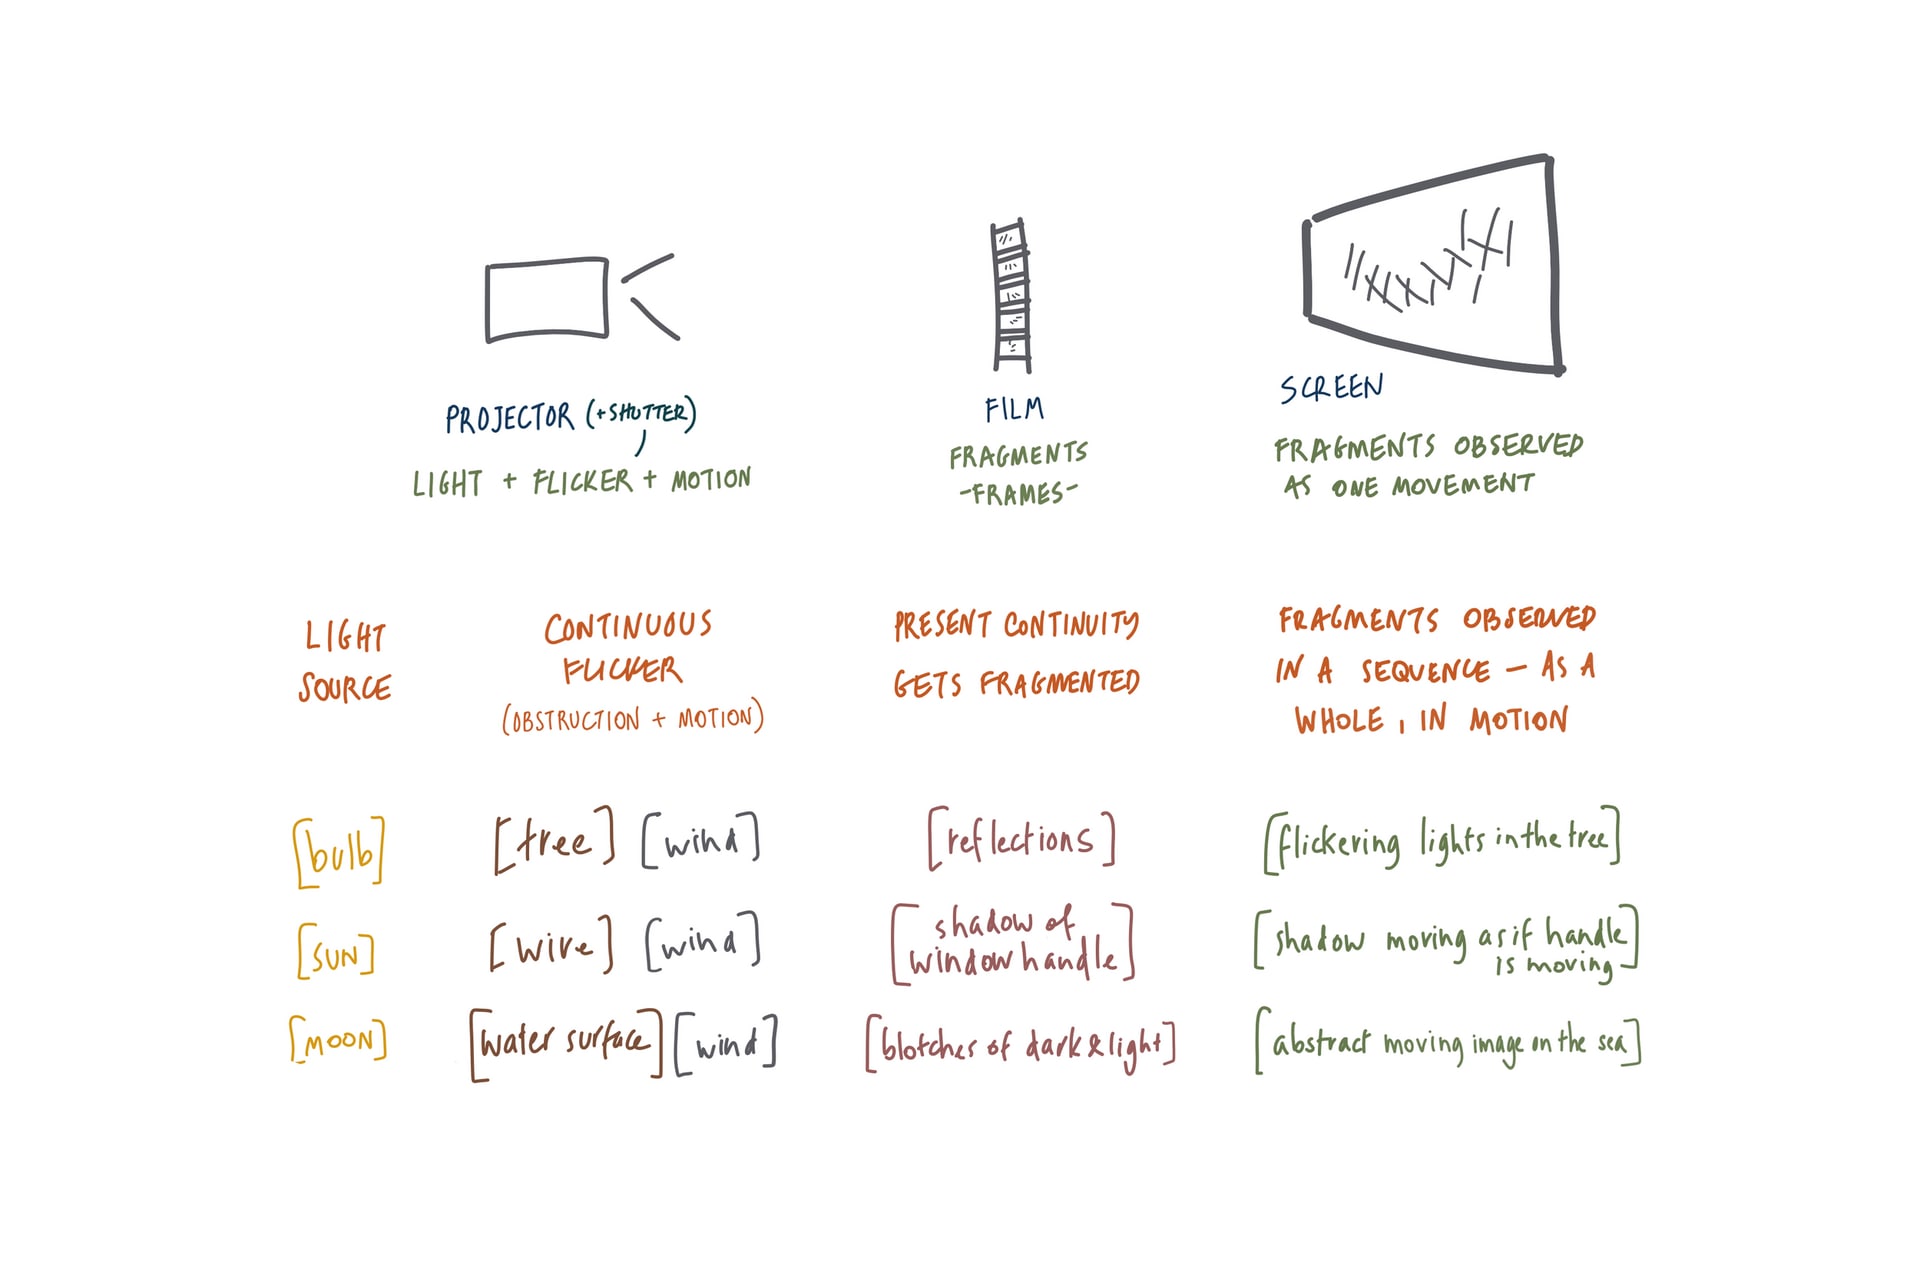 PROJECTOR (+SHUTTER)
LIGHT + FLICKER + MOTION
FILM
FRAGMENTS
-FRAMES-
SCREEN
FRAGMENTS OBSERVED
AS ONE MOVEMENT
LIGHT
SOURCE
CONTINUOUS
FLICKER
(OBSTRUCTION + MOTION)
PRESENT CONTINUITY
GETS FRAGMENTED
FRAGMENTS OBSERVED
IN A SEQUENCE – AS A
WHOLE, IN MOTION
[bulb] [tree] [wind] [reflections] [flickering lights in the tree]
[SUN] [wire] [wind] [shadow of
window handle] [shadow moving as if handle
is moving]
[MOON] [water surface] [wind] [blotches of dark & light] [abstract moving image on the sea]